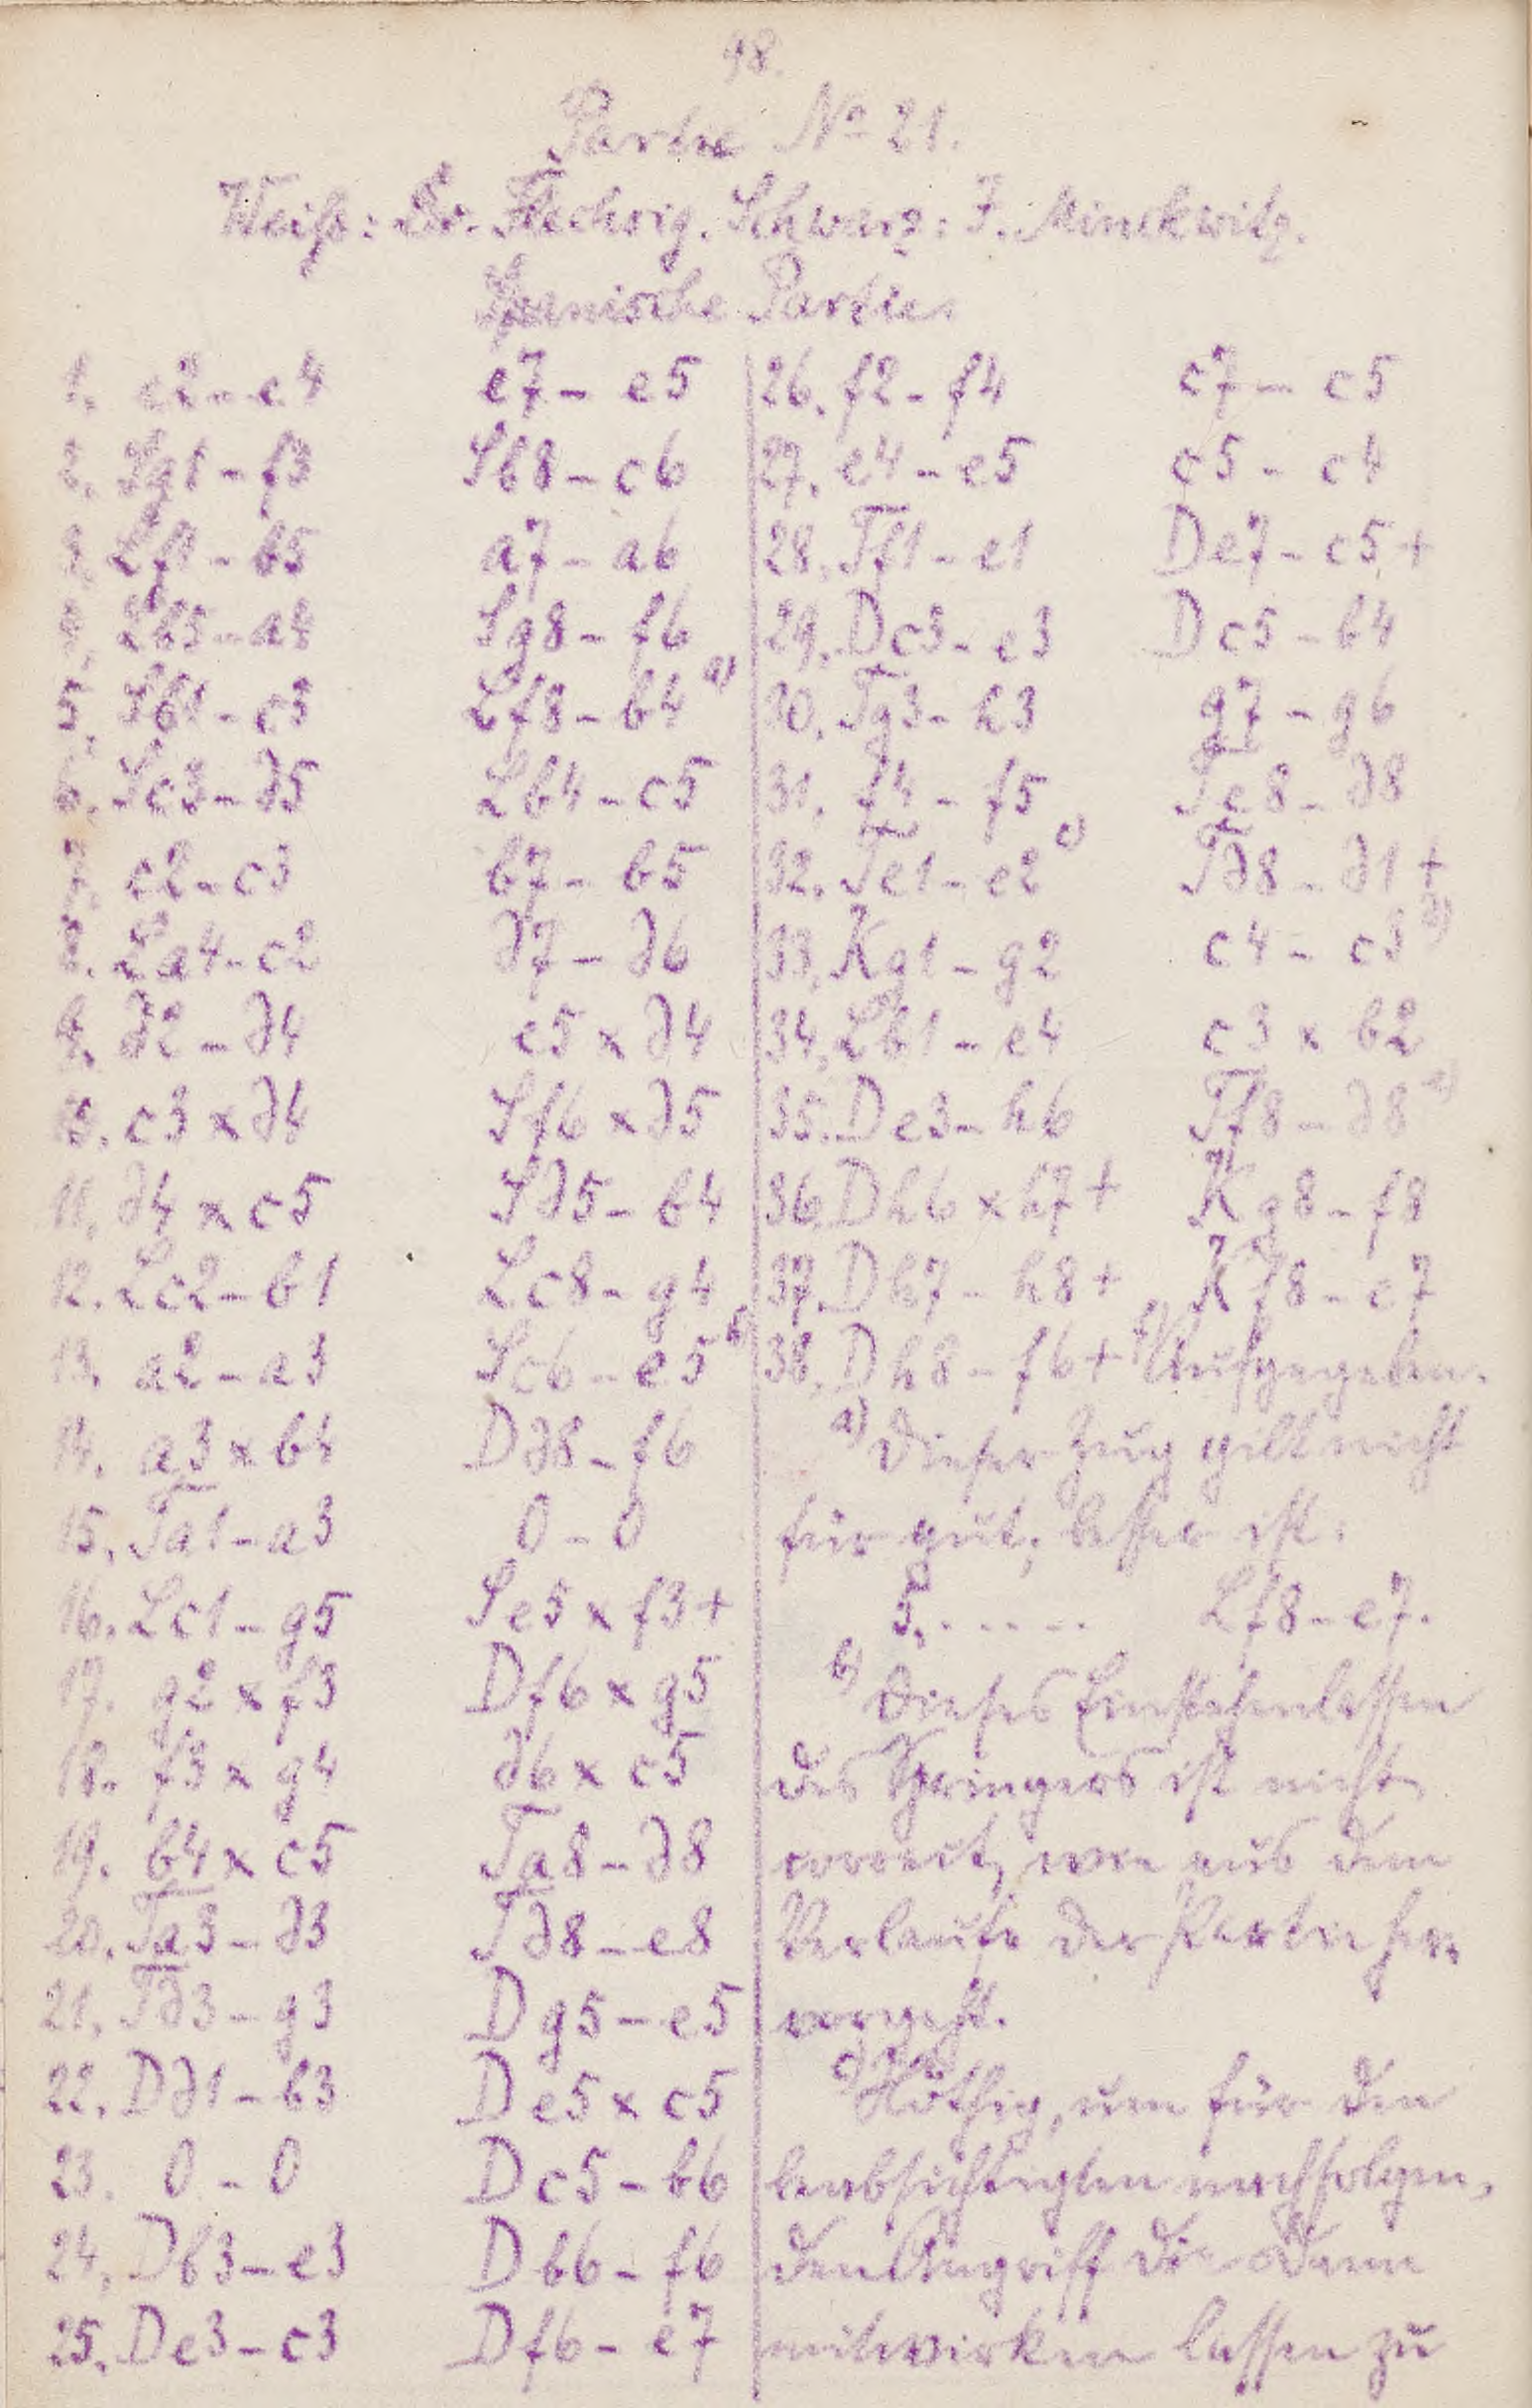 48.
Partie No 21.
Weiß: Dr. Flechsig. Schwarz: J. Minckwitz.
Spanische Partie.
1. e2-e4 e7-e5
2. Sg1-f3 Sb8-c6
3. Lf1-b5 a7-a6
4. Lb5-a4 Sg8-f6
5. Sb1-c3 Lf8-b4 a)
6. Sc3-d5 Lb4-c5
7. c2-c3 b7-b5
8. La4-c2 d7-d6
9. d2-d4 e5xd4
10. c3xd4 Sf6xd5
11. d4xc5 Sd5-b4
12. Lc2-b1 Lc8-g4
13. a2-a3 Sc6-e5 b)
14. a3xb4 Dd8-f6
15. Ta1-a3 0-0
16. Lc1-g5 Se5xf3+
17. g2xf3 Df6xg5
18. f3xg4 d6xc5
19. b4xc5 Ta8-d8
20. Ta3-d3 Td8-e8
21. Td3-g3 Dg5-e5
22. Dd1-b3 De5xc5
23. 0-0 Dc5-b6
24. Db3-e3 Db6-f6
25. De3-c3 Df6-e7
26. f2-f4 c7-c5
27. e4-e5 c5-c4
28. Tf1-e1 De7-c5+
29. Dc3-e3 Dc5-b4
30. Tg3-h3 g7-g6
31. f4-f5 Te8-d8
32. Te1-e2 c) Td8-d1+
33. Kg1-g2 c4-c3 d)
34. Lb1-e4 c3xb2
35. De3-h6 Tf8-d8 e)
36. Dh6xh7+ Kg8-f8
37. Dh7-h8+ Kf8-e7
38. Dh8-f6+ f) Aufgegeben.
a) Dieser Zug gilt nicht
für gut; besser ist:
5. ..... Lf8-e7.
b) Dieses Einstehenlassen
des Springers ist nicht
correct, wie aus dem
Verlaufe der Partie her-
vorgeht.
c) Nöthig, um für den
beabsichtigten nachfolgen-
den Angriff die Dame
mitwirken lassen zu